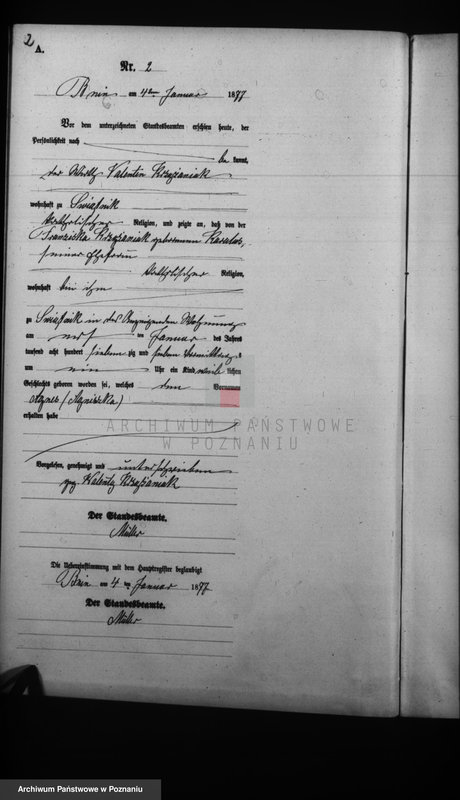 2
A.
Nr. 2
Bnin am 4ten Januar 1877
Vor dem unterzeichneten Standesbeamten erschien heute, der
Persönlichkeit nach
bekannt,
der Wirth Valentin Krzyżaniak
wohnhaft zu Swiątnik
katholischer Religion, und zeigte an, daß von der
Franziska Krzyżaniak geborenen
seiner Ehefrau
katholischer Religion,
wohnhaft bei ihm
zu Swiątnik in des Anzeigenden Wohnung
am ersten Januar des Jahres
tausend acht hundert siebenzig und sieben Vormittags
um neun Uhr ein Kind weiblichen
Geschlechts geboren worden sei, welches den Vornamen
Agnes (Agnieszka)
erhalten habe
ARCHIWUM PAŃSTWOWE
W POZNANIU
Vorgelesen, genehmigt und unterschrieben
gez. Walenty Krzyżaniak
Der Standesbeamte.
Müller
Die Uebereinstimmung mit dem Hauptregister beglaubigt
Bnin am 4ten Januar 1877
Der Standesbeamte.
Müller
Archiwum Państwowe w Poznaniu